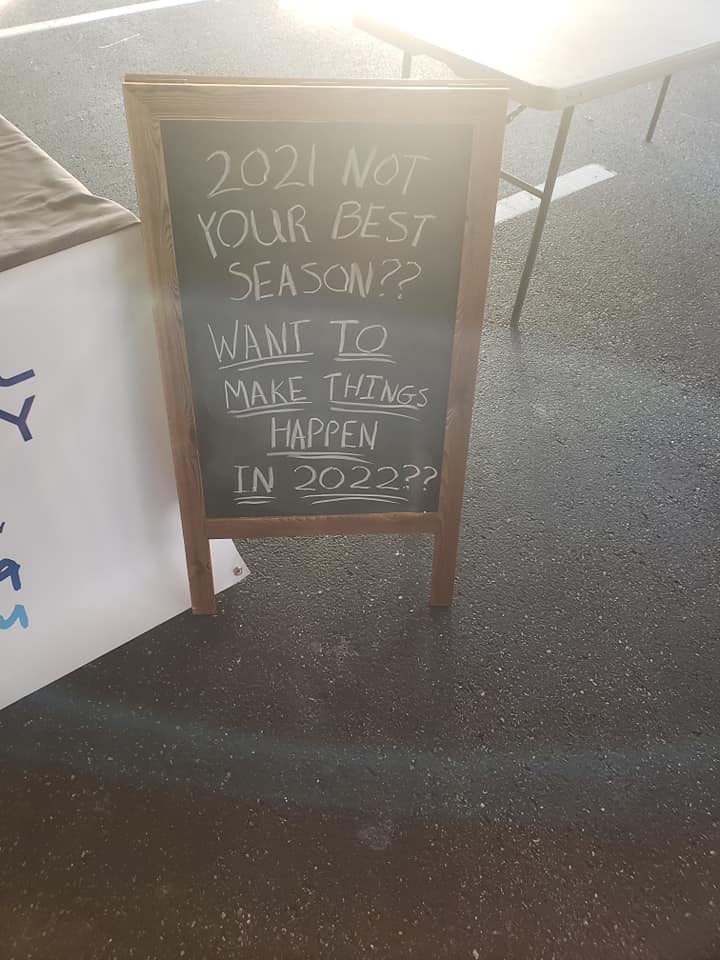 2021 NOT
YOUR BEST
SEASON??
WANT TO
MAKE THINGS
HAPPEN
IN 2022??
Y